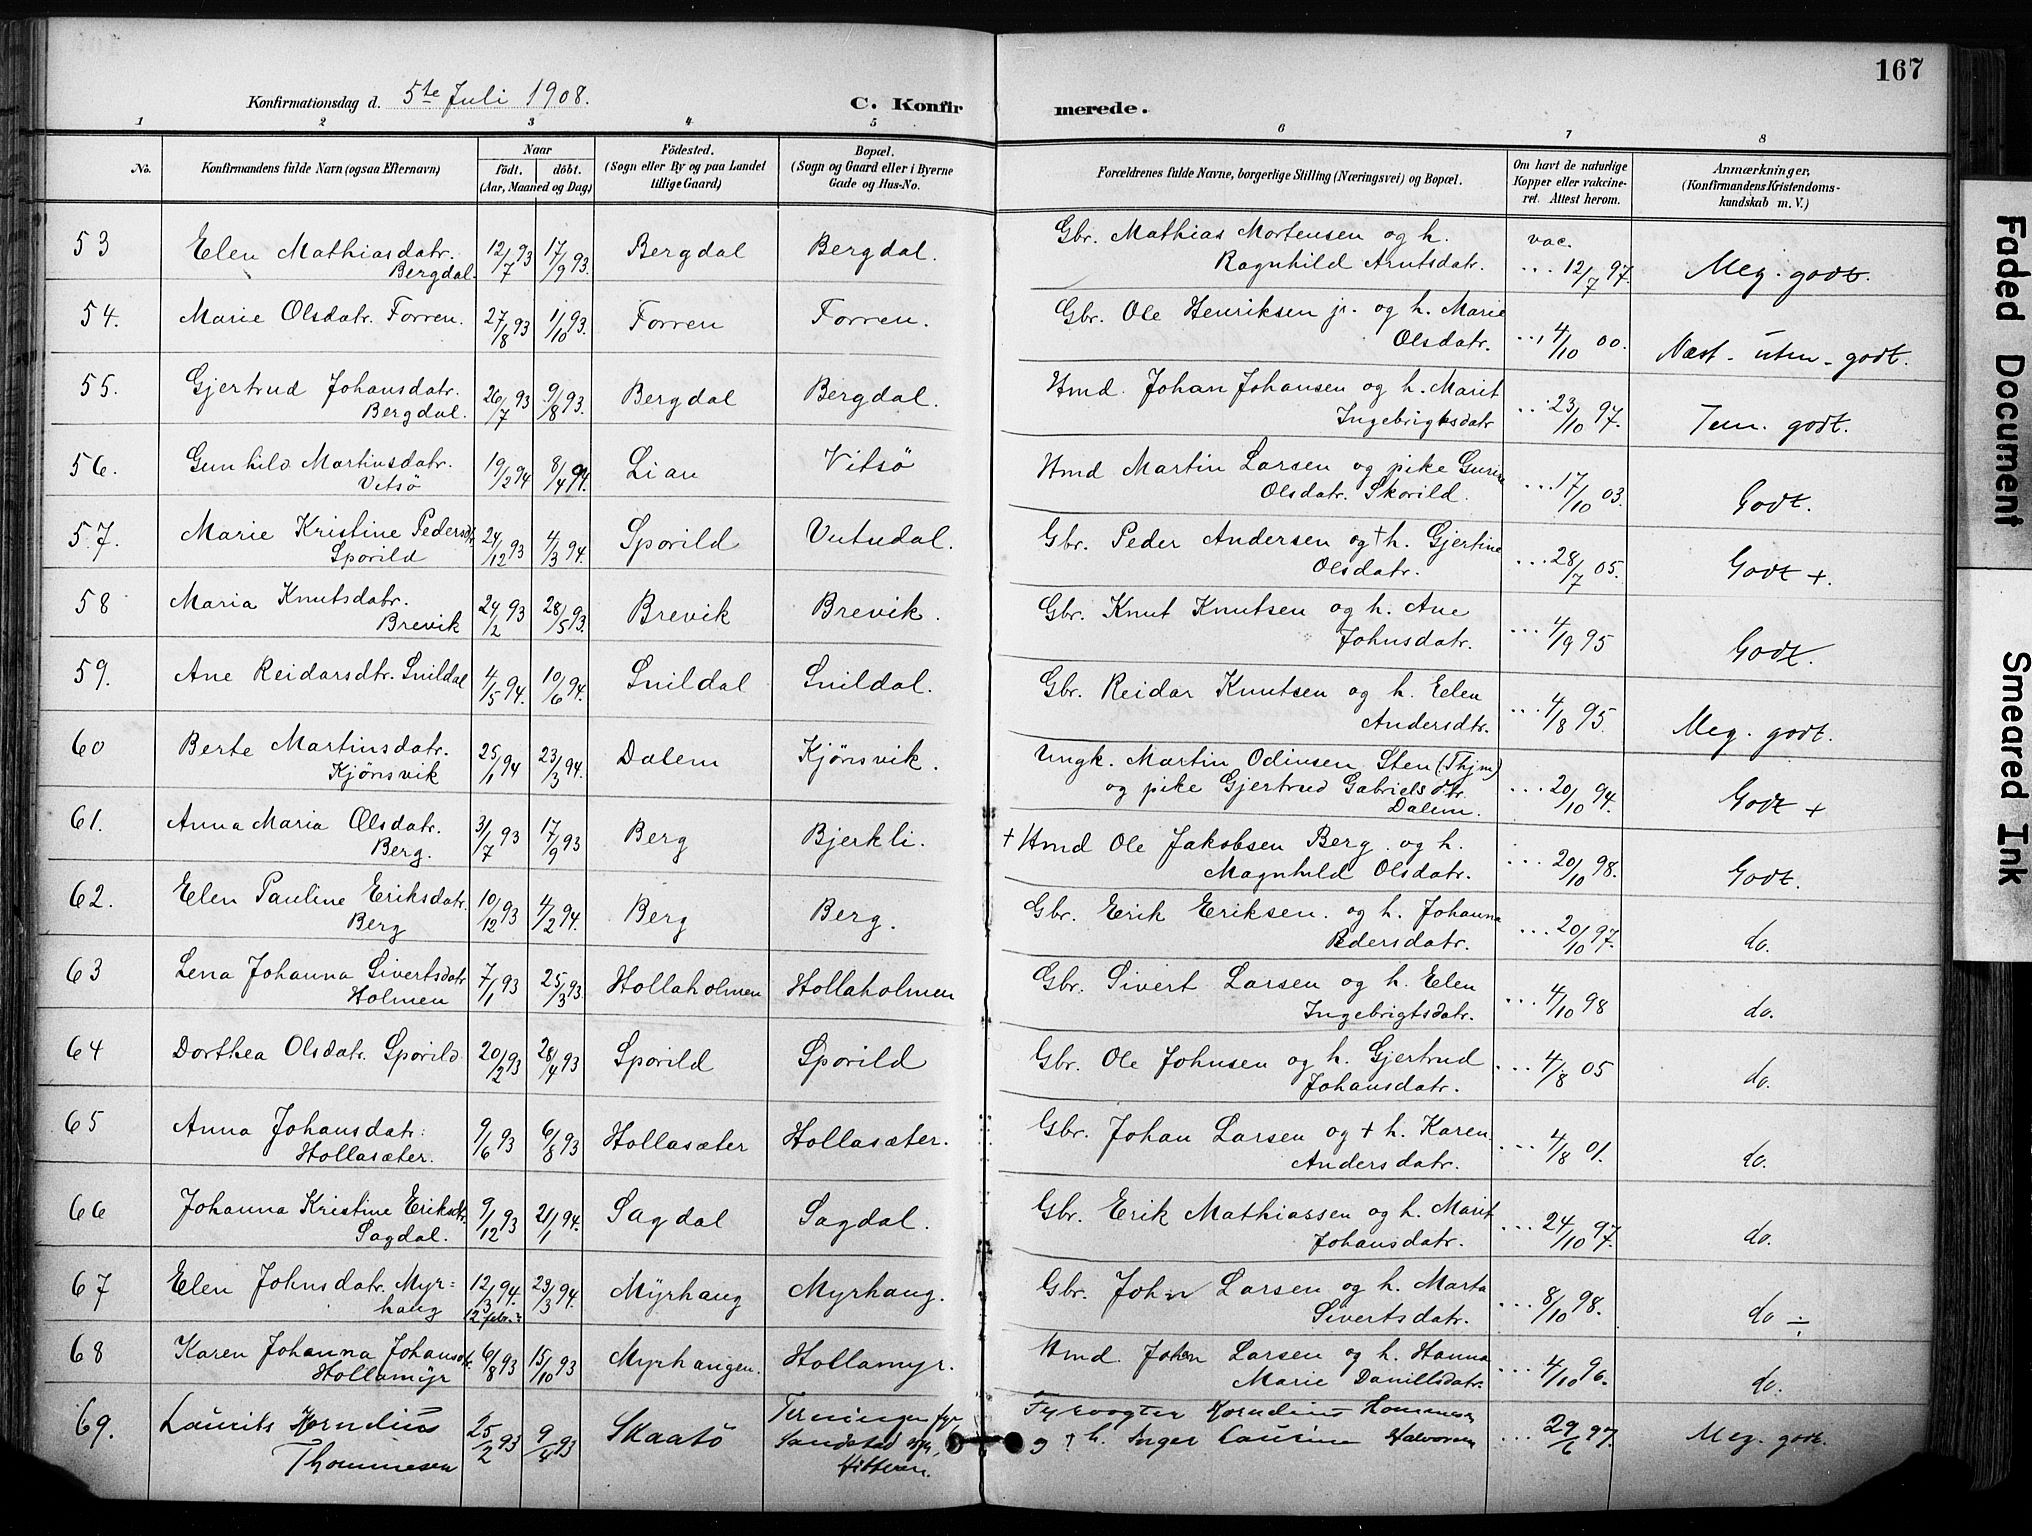 167
Konfirmationsdag d. 5te Juli 1908.
C. Konfirmerede.
1 2 3 4 5 6 7 8
No.
Konfirmandens fulde Navn (ogsaa Efternavn)
Naar
födt. döbt.
(Aar, Maaned og Dag)
Födested.
(Sogn eller By og paa Landet
tillige Gaard)
Bopæl.
(Sogn og Gaard eller i Byerne
Gade og Hus-No.
Forældrenes fulde Navne, borgerlige Stilling (Næringsvei) og Bopæl.
Om havt de naturlige
Kopper eller vakcine-
ret. Attest herom.
Anmærkninger,
(Konfirmandens Kristendoms-
kundskab m. V.)
53 Elen Mathiasdatr. 12/7 93 17/9 93. Bergdal Bergdal. Gbr. Mathias Mortensen og h. vac.
Bergdal. Ragnhild Arntsdatr. ... 12/7 97. Meg. godt.
54. Marie Olsdatr. Forren. 27/8 93 1/10 93. Forren Forren. Gbr. Ole Henriksen jr. og h. Marie
Olsdatr. ... 4/10 00. Næst. utm. godt.
55. Gjertrud Johansdatr. 26/7 93 9/8 93. Bergdal Bergdal. Hmd. Johan Johansen og h. Marit
Bergdal. Ingebrigtsdatr ... 23/10 97. Tem. godt.
56. Gunhild Martinsdatr. 19/2 94 8/4 94. Lian Vitsö Hmd Martin Larsen og pike Gurine
Vitsö Olsdatr. Skorild. ... 17/10 03. Godt.
57. Marie Kristine Pedersdt. 24/12 93 4/3 94. Sporild Vutudal. Gbr. Peder Andersen og † h. Gjertine
Sporild Olsdatr. ... 28/7 05. Godt +.
58 Maria Knutsdatr. 24/2 93 28/5 93. Brevik Brevik. Gbr. Knut Knutsen og h. Ane
Brevik Johnsdatr. ... 4/9 95 Godt.
59. Ane Reidarsdtr. Snildal 4/5 94. 10/6 94. Snildal Snildal. Gbr. Reidar Knutsen og h. Elen
Andersdtr. ... 4/8 95. Meg. godt.
60 Berte Martinsdatr. 25/1 94 23/3 94. Dalem Kjönsvik. Ungk. Martin Odinsen Sten (Thjm)
Kjönsvik og pike Gjertrud Gabrielsdtr. ... 20/10 94. Godt +
Dalem.
61. Anna Maria Olsdatr. 31/7 93 17/9 93 Berg Bjerkli. + Hmd Ole Jakobsen Berg. og h.
Berg. Magnhild Olsdatr. ... 20/10 98. Godt.
62. Elen Pauline Eriksdatr. 10/12 93 4/2 94. Berg Berg. Gbr. Erik Eriksen. og h. Johanna
Berg Pedersdatr. ... 20/10 97. do.
63 Lena Johanna Sivertsdatr 7/1 93 25/3 93. Hollaholmen Hollaholmen Gbr. Sivert Larsen og h. Elen
Holmen Ingebrigtsdatr. ... 4/10 98 do.
64 Dorthea Olsdatr. Sporild 20/2 93 28/4 93 Sporild Sporild Gbr. Ole Johnsen og h. Gjertrud
Johansdatr. ... 4/8 05 do.
65 Anna Johansdatr. 9/6 93 6/8 93 Hollasæter Hollasæter. Gbr. Johan Larsen og + h. Karen
Hollasæter. Andersdatr. ... 4/8 01. do.
66 Johanna Kristine Eriksdtr. 9/12 93 21/1 94. Sagdal Sagdal. Gbr. Erik Mathiassen og h. Marit
Sagdal. Johansdatr. ... 24/10 97. do.
67 Elen Johnsdatr. Myr= 12/3 94. 23/3 94. Myrhaug Myrhaug. Gbr. John Larsen og h. Marta
haug 12 febr. Sivertsdatr. ... 8/10 98. do ÷
68 Karen Johanna Johansdtr. 6/8 93 15/10 93 Myrhaugen. Hollamyr. Hmd. Johan Larsen og h. Hanna
Hollamyr Marie Danillsdatr. ... 4/10 96. do.
69. Laurits Kornelius 25/2 93 9/4 93 Skaatö Terningen fyr Fyrvogter Kornelius Thommesen
Thommesen Sandstad sogn, og h. Inger Halvorsen ... 29/6 97. Meg. godt.
Hitteren.
Faded Document
Smeared Ink